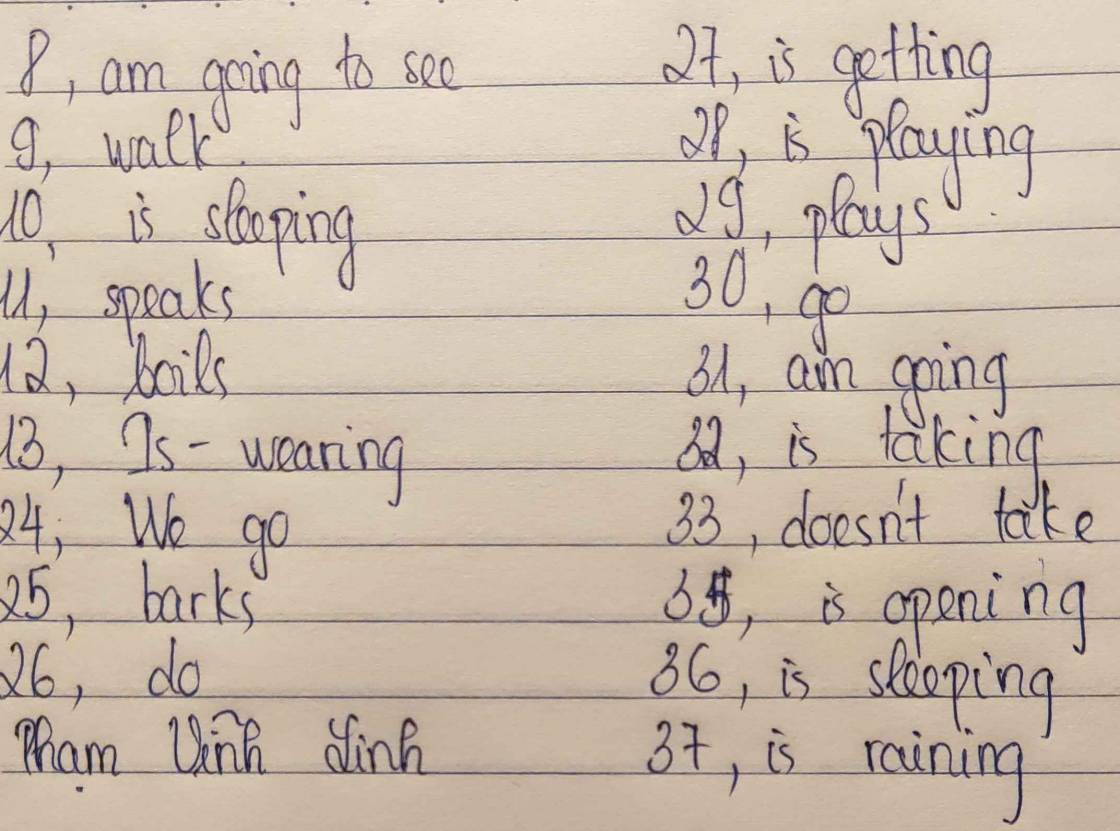 8, am going to see
9, walk.
10, is sleeping
11, speaks
12, boils
13, Is - wearing
24, We go
25, barks
26, do
Phạm Vĩnh Linh
27, is getting
28, is playing
29, plays.
30, go
31, am going
32, is taking
33, doesn't take
35, is opening
36, is sleeping
37, is raining